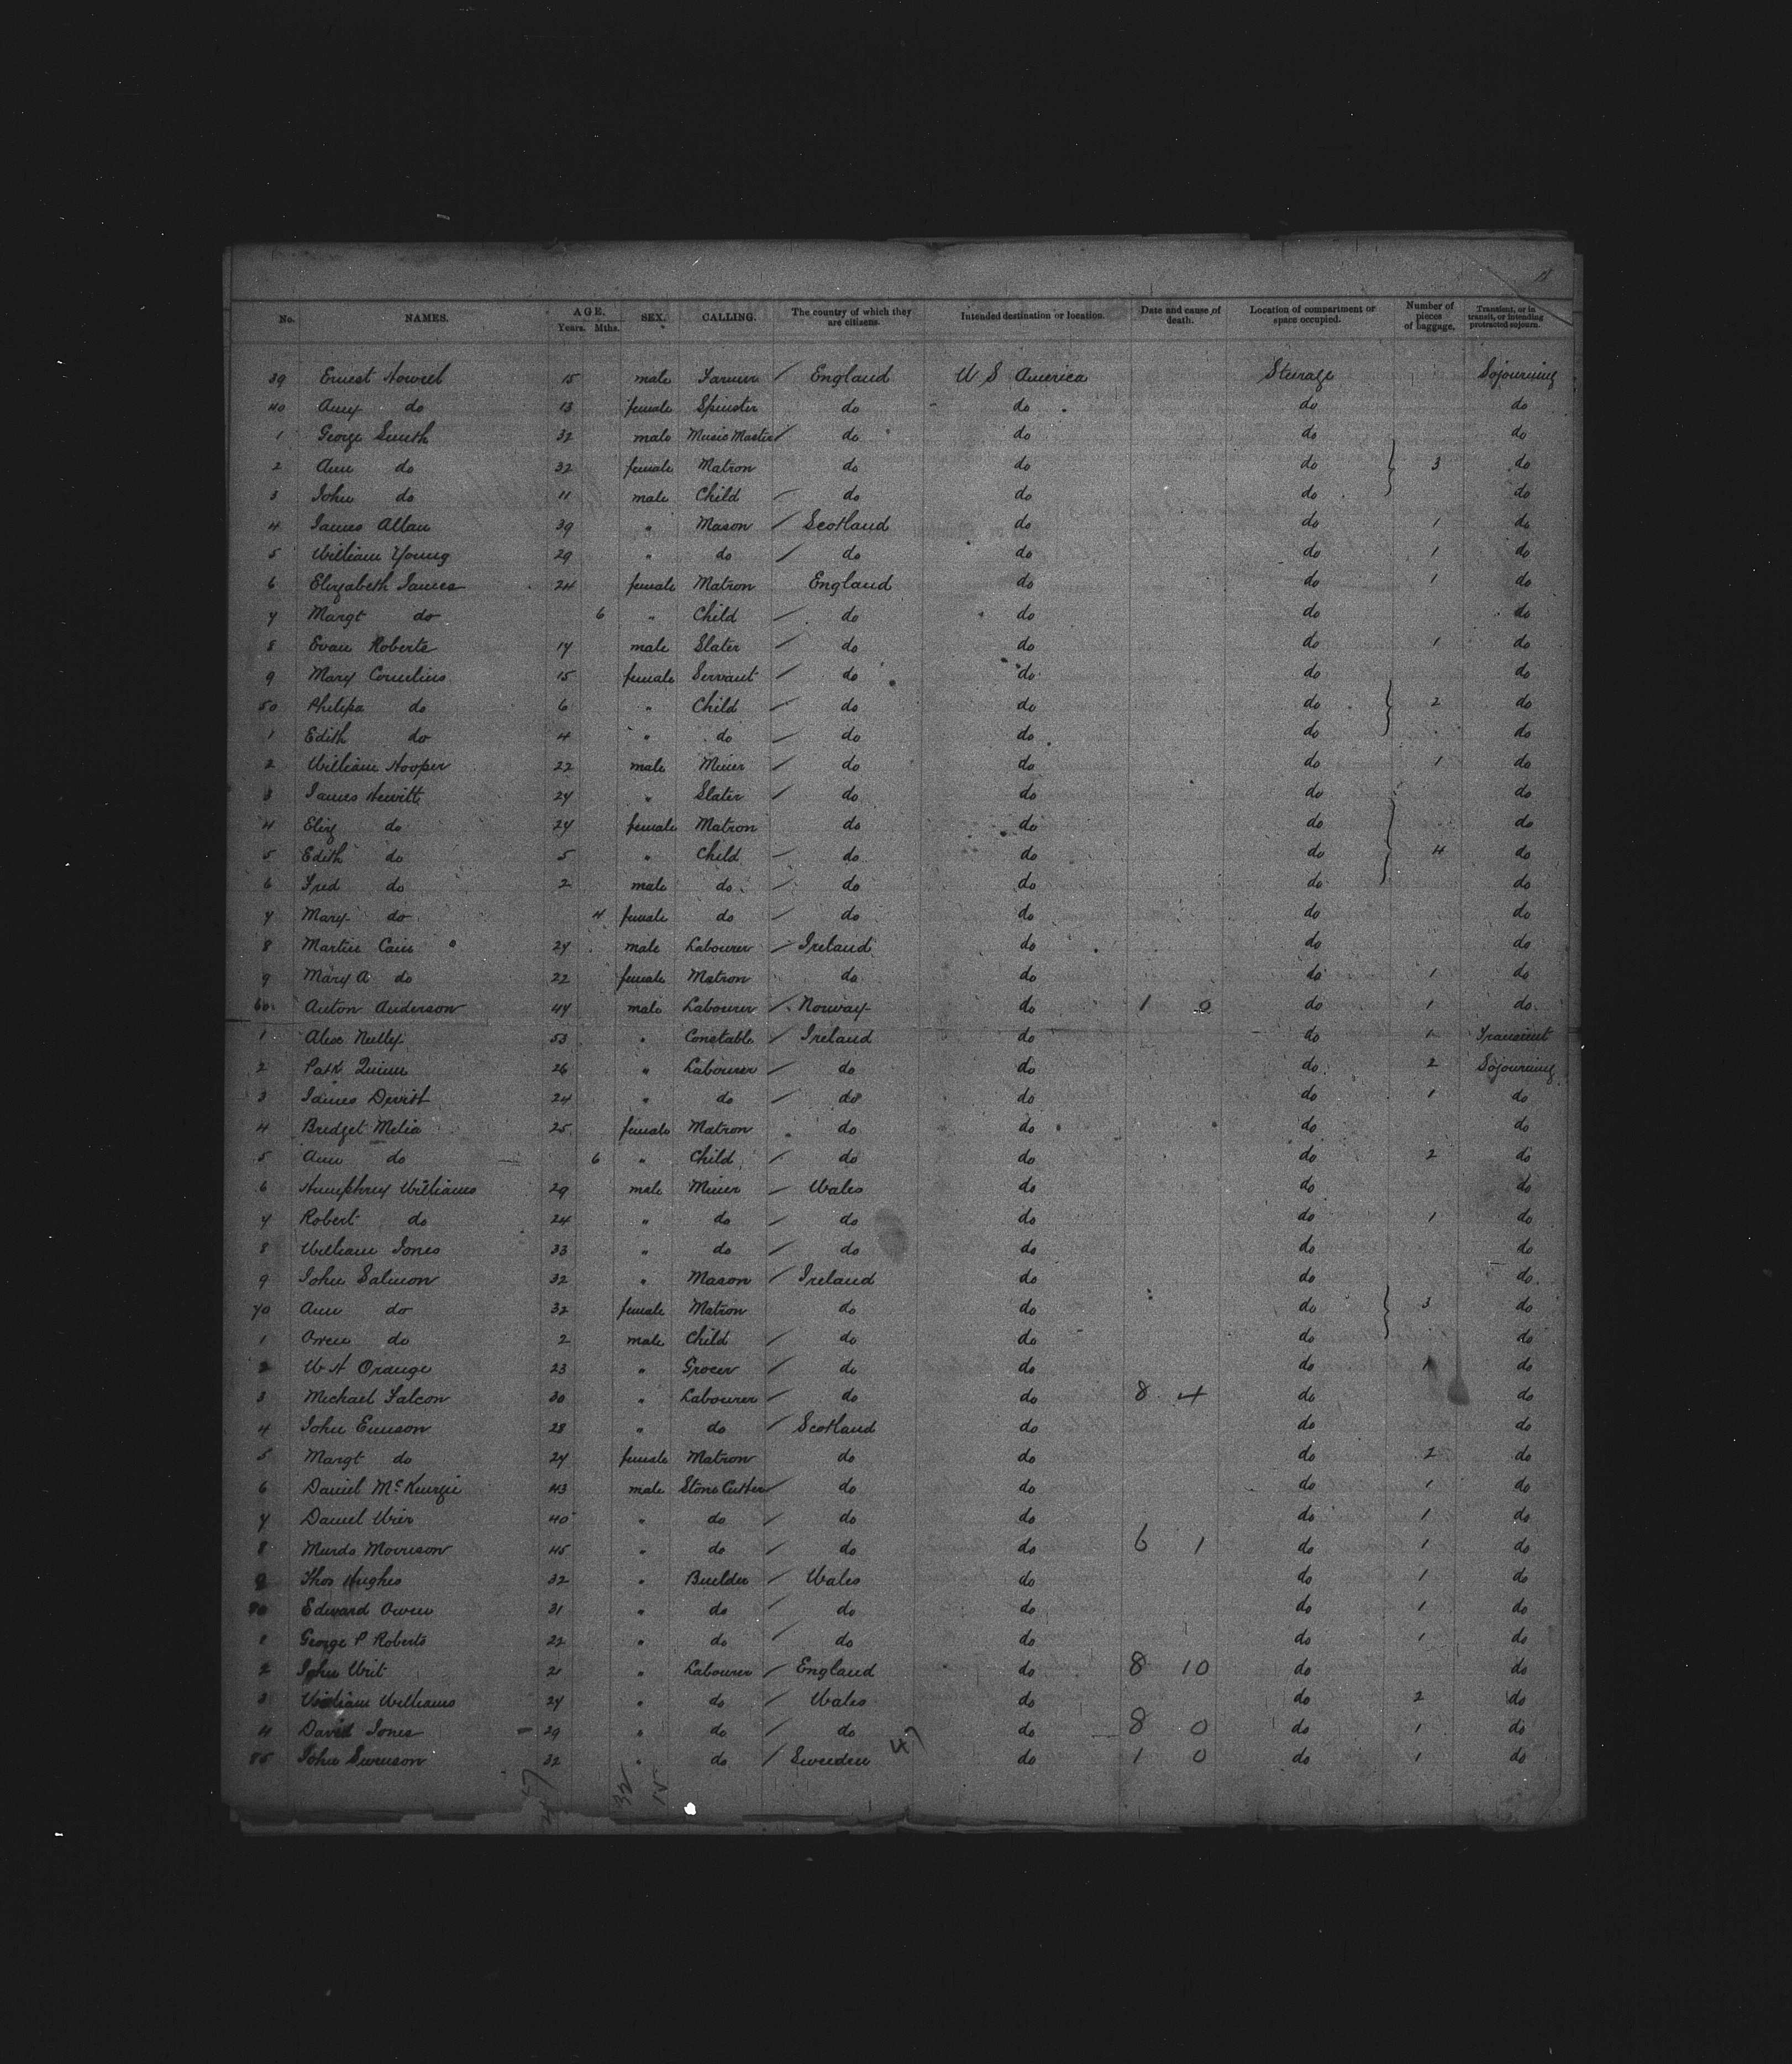 18
No. NAMES. AGE. Years. Mths. SEX. CALLING. The country of which they are citizens. Intended destination or location. Date and cause of death. Location of compartment or space occupied. Number of pieces of baggage. Transient, or in transit, or intending protracted sojourn.
39 Ernest Howell 15 male Farmer / England U S America Steerage Sojourning
40 Amy do 13 female Spinster do do do do
1 George Smith 32 male Music Master / do do do do
2 Ann do 32 female Matron do do do 3 do
3 John do 11 male Child / do do do do
4 James Allan 39 " Mason / Scotland do do 1 do
5 William Young 29 " do / do do do 1 do
6 Elizabeth James 24 female Matron England do do 1 do
7 Margt do 6 " Child / do do do do
8 Evan Roberts 17 male Slater / do do do 1 do
9 Mary Cornelius 15 female Servant / do do do do
50 Philipa do 6 " Child / do do do 2 do
1 Edith do 4 " do / do do do do
2 William Hooper 22 male Miner / do do do 1 do
3 James Hewitt 27 " Slater / do do do do
4 Eliz do 27 female Matron do do do do
5 Edith do 5 " Child / do do do 4 do
6 Fred do 2 male do / do do do do
7 Mary do 4 female do / do do do do
8 Martin Cain 27 male Labourer / Ireland do do do
9 Mary A do 22 female Matron do do do 1 do
60 Anton Anderson 47 male Labourer / Norway do 1 0 do 1 do
1 Alex Nully 53 " Constable / Ireland do do 1 Transient
2 Patk Quinn 26 " Labourer / do do do 2 Sojourning
3 James Devitt 24 " do / do do do 1 do
4 Bridget Melia 25 female Matron do do do do
5 Ann do 6 " Child / do do do 2 do
6 Humphrey Williams 29 male Miner / Wales do do do
7 Robert do 24 " do / do do do 1 do
8 William Jones 33 " do / do do do do
9 John Salmon 32 " Mason / Ireland do do do
70 Ann do 32 female Matron do do do 3 do
1 Owen do 2 male Child / do do do do
2 W H Orange 23 " Grocer / do do do 1 do
3 Michael Falcon 30 " Labourer / do do 8 4 do do
4 John Emson 28 " do / Scotland do do do
5 Margt do 27 female Matron do do do 2 do
6 Daniel McKenzie 43 male Stone Cutter / do do do 1 do
7 Daniel Weir 40 " do / do do do 1 do
8 Murdo Morrison 45 " do / do do 6 1 do 1 do
9 Thos Hughes 32 " Builder / Wales do do 1 do
80 Edward Owen 31 " do / do do do 1 do
1 George P Roberts 22 " do / do do do 1 do
2 John 21 " Labourer / England do 8 10 do do
3 William Williams 27 " do / Wales do do 2 do
4 David Jones 29 " do / do do 8 0 do 1 do
85 John Swenson 32 " do / Sweeden do 1 0 do 1 do
47
47 32 15